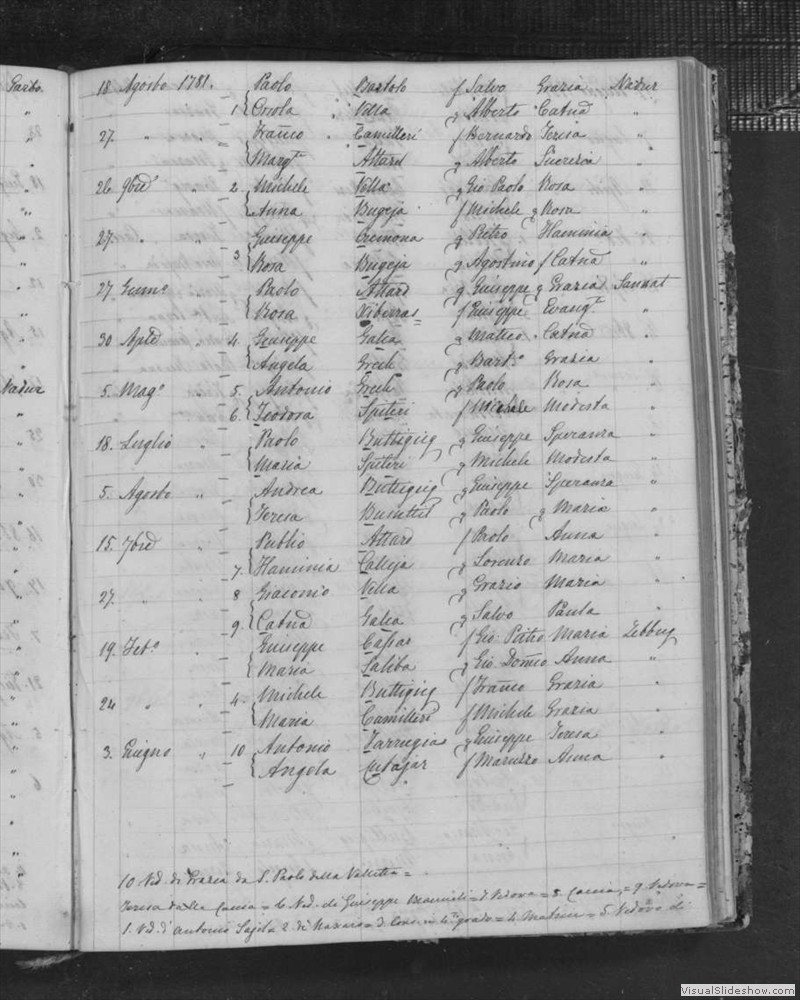 Garbo.
18 Agosto 1781. Paolo Bartolo f Salvo Grazia Nadur
1 Orsola Vella g Alberto Catnã
27. " Franco Camilleri f Bernardo Teresa "
Margta Attard g Alberto "
26 9bre " 2. Michele Vella g Gio Paolo Rosa "
Anna Bugeja f Michele g Rosa "
27. " " Giuseppe Cremona g Pietro Flaminia "
3 Rosa Bugeja g Agostino f Catnã "
27 Genno Paolo Attard g Giuseppe g Grazia Sannat
Rosa Xiberras f Giuseppe Evangta "
30 Aple " 4. Giuseppe Galea g Matteo Catnã "
Angela Grech g Barto Grazia "
Nadur
5. Mago 5. Antonio Grech g Paolo Rosa "
6. Teodora Spiteri f Michele Modesta "
18. Luglio " Paolo Buttigieg g Giuseppe Speranza "
Maria Spiteri g Michele Modesta "
5. Agosto " Andrea Buttigieg g Giuseppe Speranza "
Teresa Busuttil g Paolo g Maria "
15. 7bre " Publio Attard f Paolo Anna "
7. Flaminia Calleja g Lorenzo Maria "
27. " " 8 Giacomo Vella g Grazio Maria "
9. Catnã Galea g Salvo Paula "
19. Febo " Giuseppe Cassar f Gio. Pietro Maria Zebbug
Maria Saliba g Gio. Domco Anna "
24 " 4. Michele Buttigieg f Franco Grazia "
Maria Camilleri f Michele Grazia "
3. Giugno " 10 Antonio Farrugia g Giuseppe Teresa "
Angela Cutajar f Maruzzo Anna "
10 Ved. di Grazia da S. Paolo della Valletta =
Teresa della Causa = 6 Ved. di Giuseppe = 7 Vedova = 8. = 9 Vedova =
1. Ved. d'Antonio 2 di = 3 Cons. in 4to grado = 4. = 5. Vedova di
VisualSlideshow.com